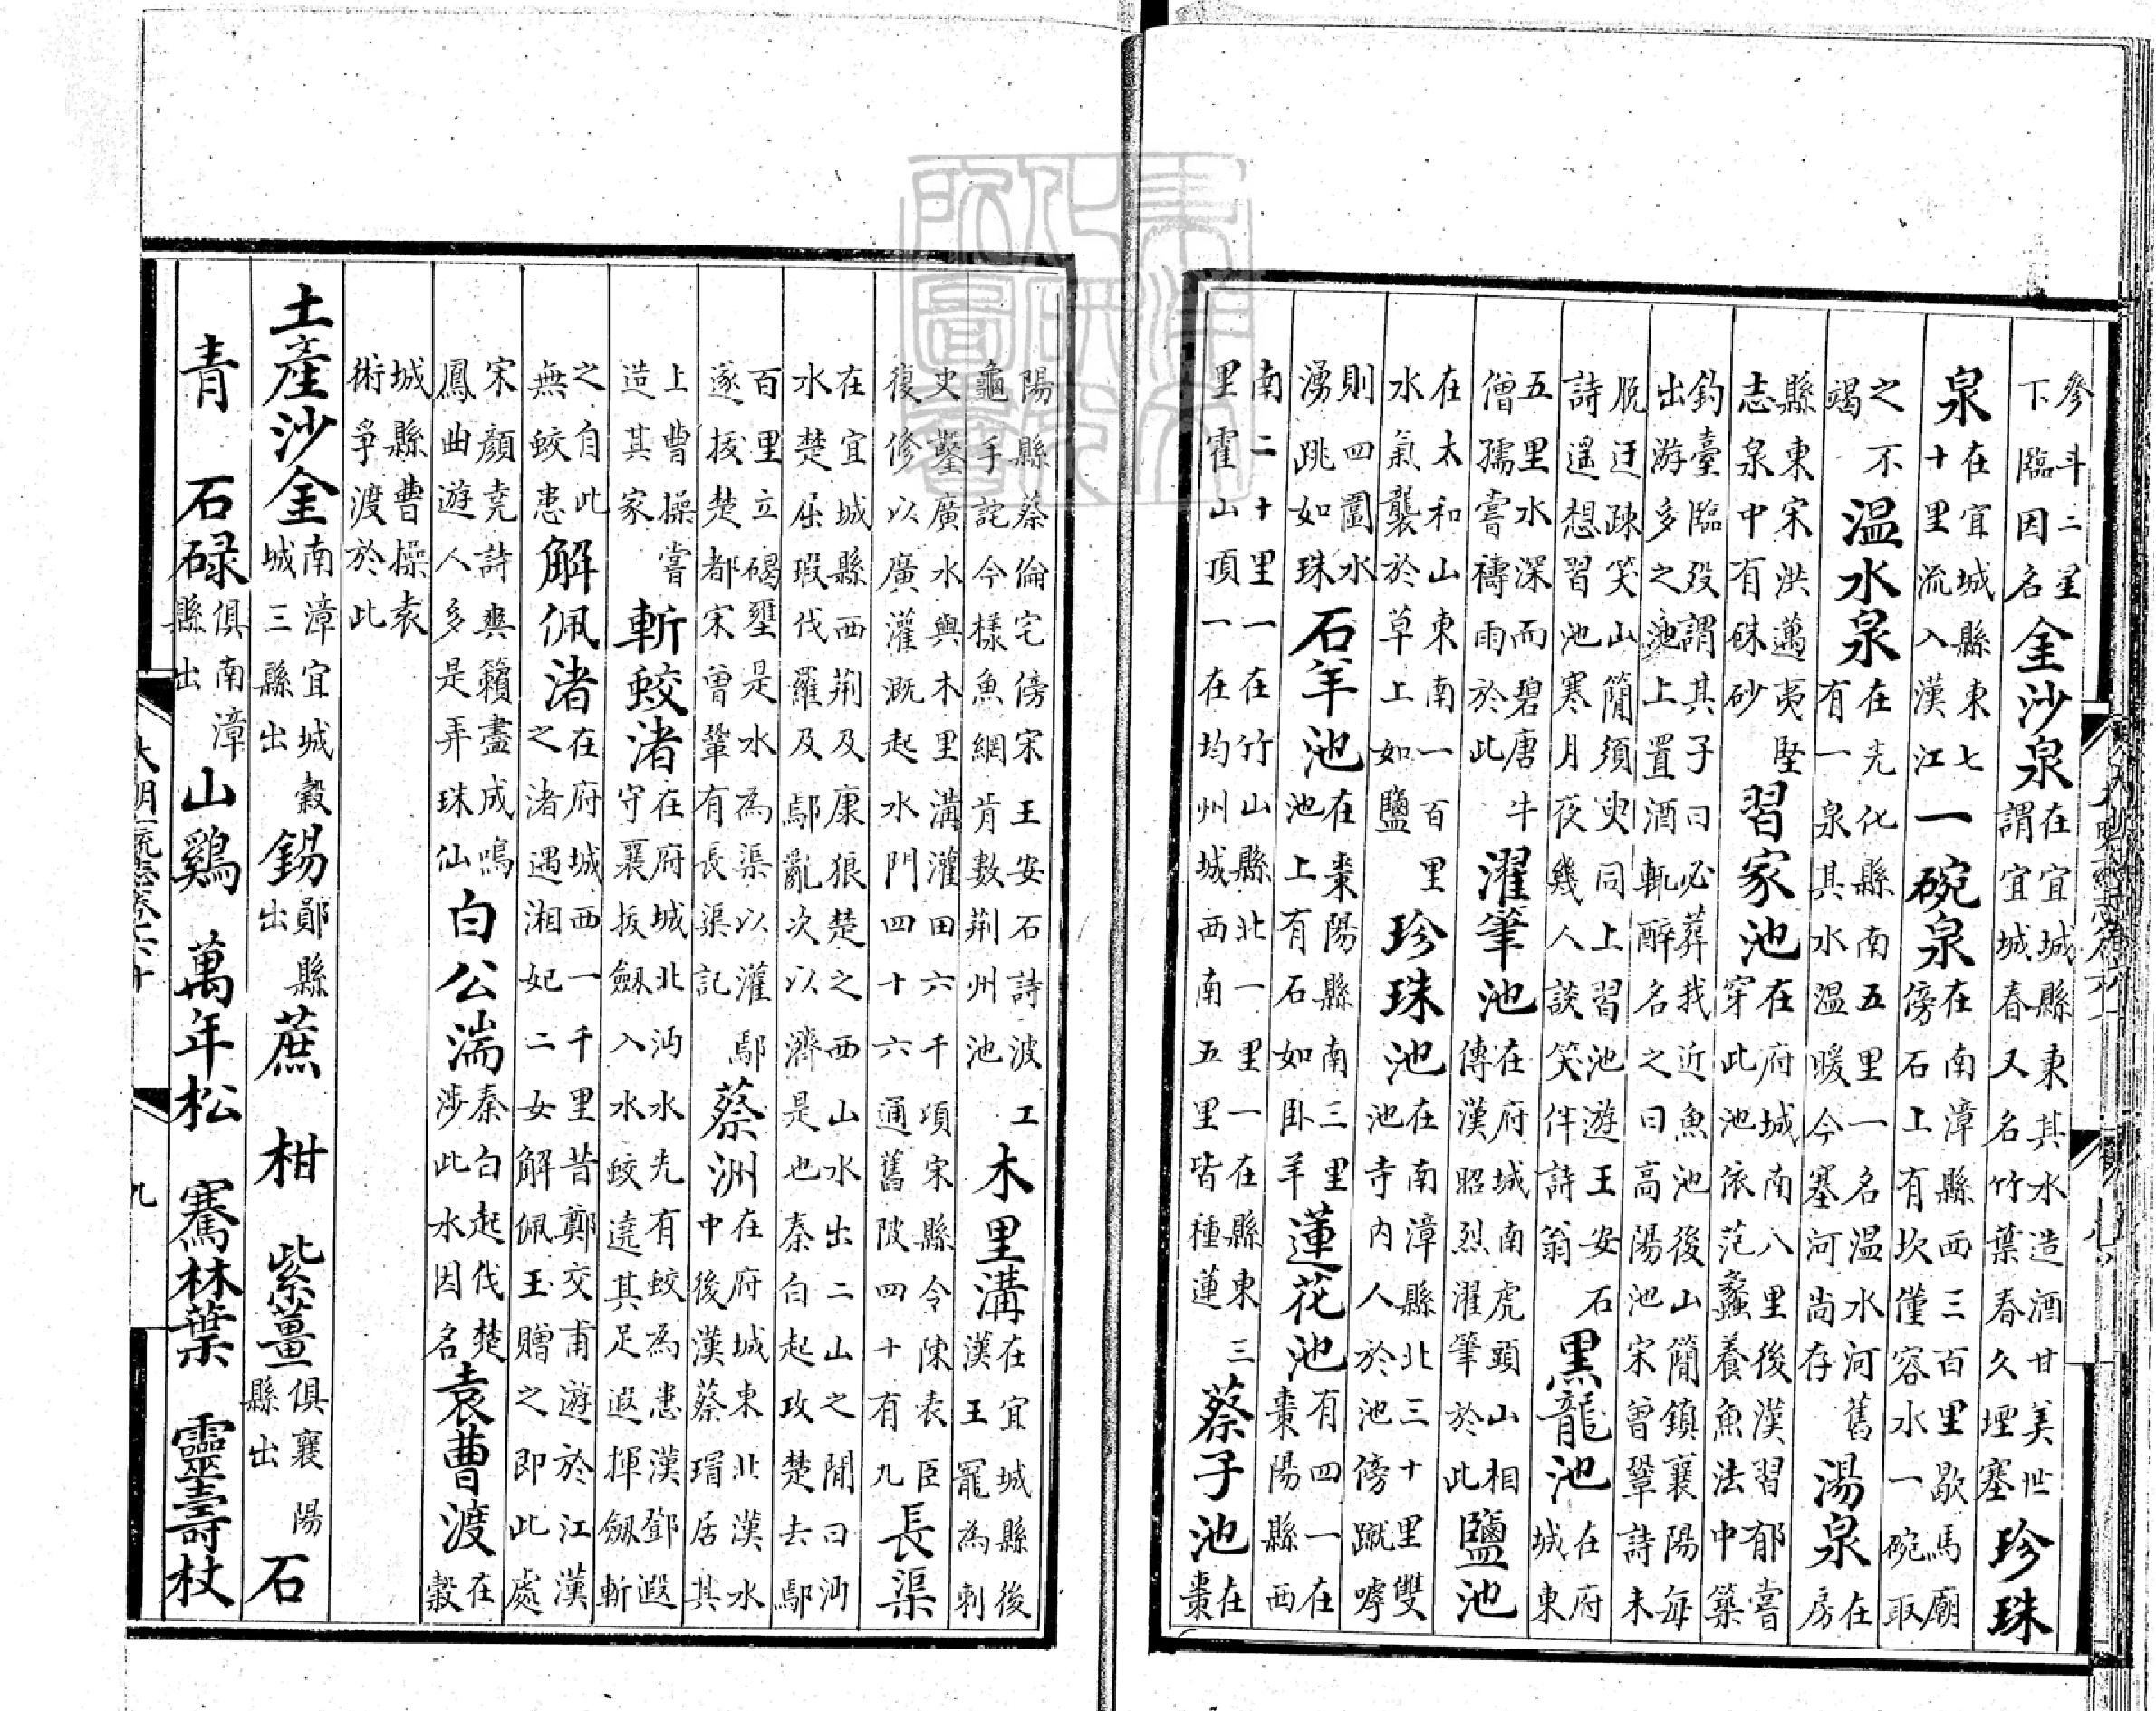 參斗二星下臨因名金沙泉在宜城縣東其水造酒甘美世謂宜城春又名竹葉春久堙塞珍珠
泉在宜城縣東七十里流入漢江一碗泉在南漳縣西三百里歇馬廟傍石上有坎僅容水一碗取
之不竭溫水泉在光化縣南五里一名溫水河舊有一泉其水溫暖今塞河尚存湯泉在房
縣東宋洪邁夷堅志泉中有硃砂習家池在府城南八里後漢習郁嘗穿此池依范蠡養魚法中築
釣臺臨歿謂其子曰必葬我近魚池後山簡鎮襄陽每出游多之池上置酒輒醉名之曰高陽池宋曾鞏詩未
脫迂疎笑山簡須臾同上習池遊王安石詩遥想習池寒月夜幾人談笑伴詩翁黑龍池在府城東
五里水深而碧唐牛僧孺嘗禱雨於此濯筆池在府城南虎頭山相傳漢昭烈濯筆於此鹽池
在太和山東南一百里水氣襲於草上如鹽珍珠池在南漳縣北三十里雙池寺内人於池傍蹴嘑
則四圍水湧跳如珠石羊池在棗陽縣南三里池上有石如卧羊蓮花池有四一在棗陽縣西
南二十里一在竹山縣北一里一在縣東三里霍山頂一在均州城西南五里皆種蓮蔡子池在棗
陽縣蔡倫宅傍宋王安石詩波工龜手詫今樣魚網肯數荆州池木里溝在宜城縣後漢王寵為刺
史鑿廣水與木里溝灌田六千項宋縣令陳表臣復修以廣灌溉起水門四十六通舊陂四十有九長渠
在宜城縣西荆及康狼楚之西山水出二山之間曰沔水楚屈瑕伐羅及鄢亂次以濟是也秦白起攻楚去鄢
百里立碣壅是水為渠以灌鄢遂拔楚都宋曾鞏有長渠記蔡洲在府城東北漢水中後漢蔡瑁居其
上曹操嘗造其家斬蛟渚在府城北沔水先有蛟為患漢鄧遐守襄拔劔入水蛟遶其足遐揮劔斬
之自此無蛟患解佩渚在府城西一千里昔鄭交甫遊於江漢之渚遇湘妃二女解佩玉贈之即此處
宋顏堯詩爽籟盡成鳴鳳曲遊人多是弄珠仙白公湍秦白起伐楚涉此水因名袁曹渡在穀
城縣曹操袁術爭渡於此
土產沙金南漳宜城穀城三縣出錫鄖縣出蔗柑紫薑俱襄陽縣出石
青石碌俱南漳縣出山鷄萬年松騫林葉靈壽杖
大明一統志卷六十
九